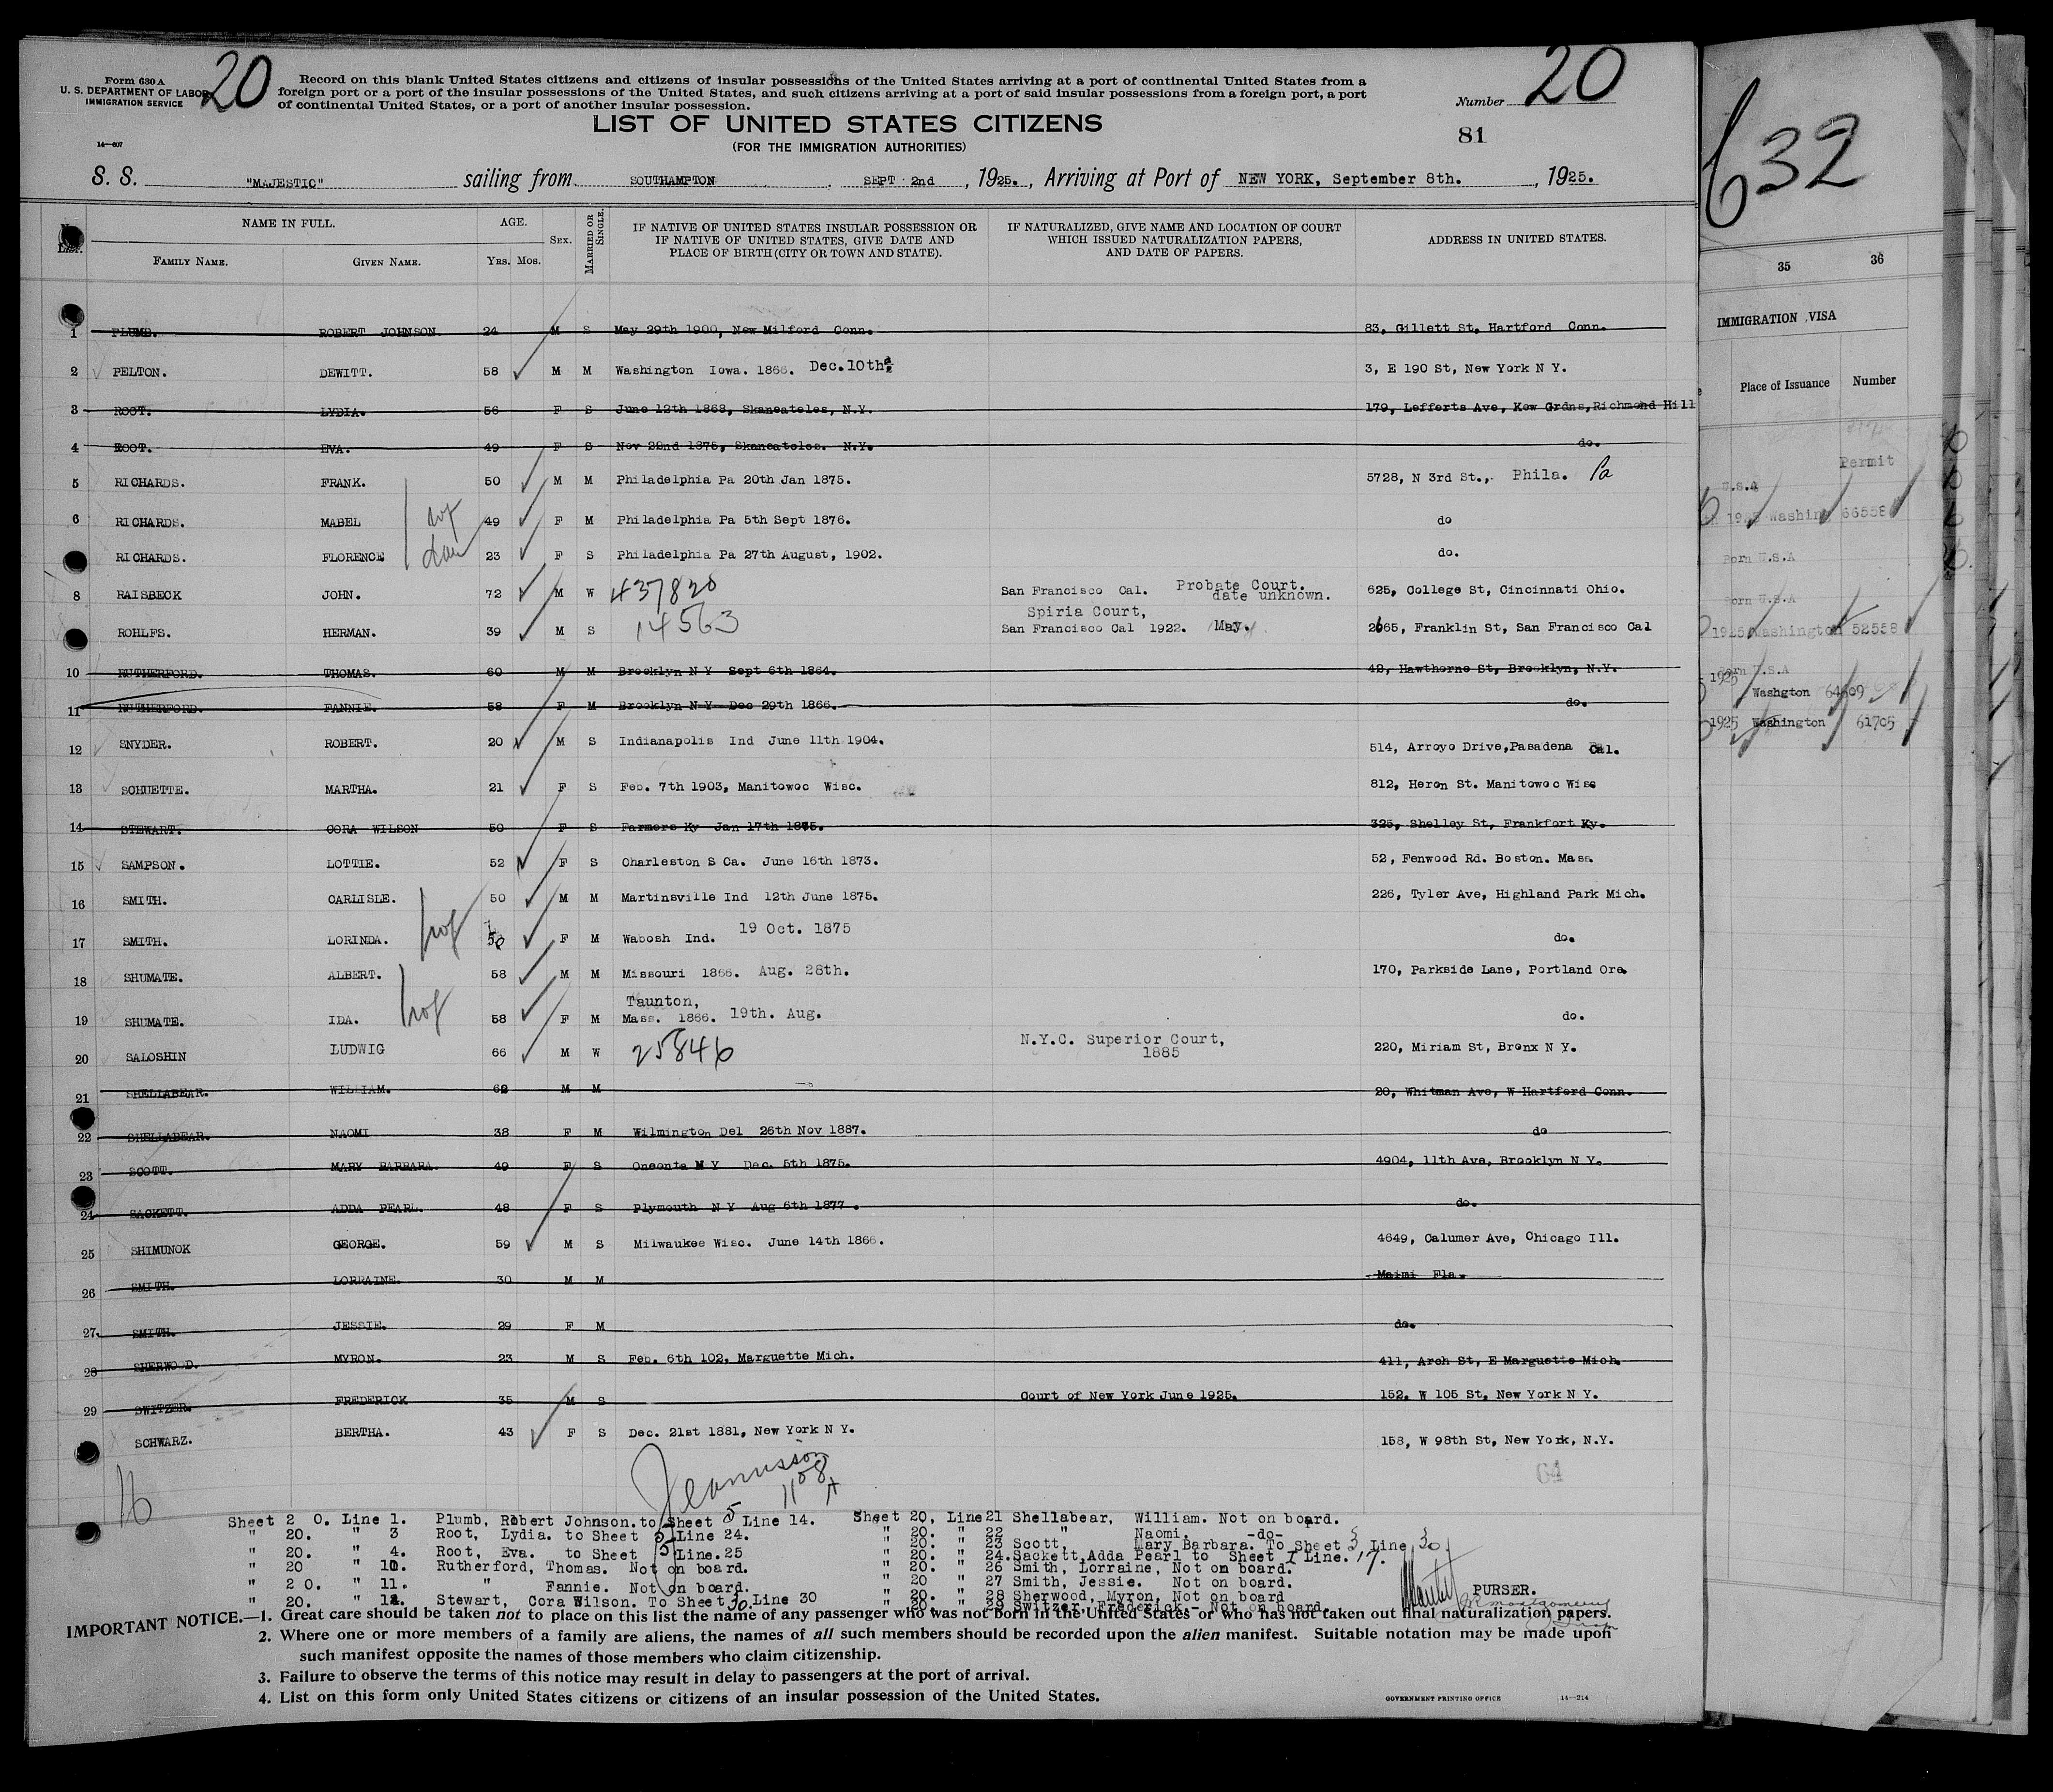 Form 630 A
U. S. DEPARTMENT OF LABOR
IMMIGRATION SERVICE
20
Record on this blank United States citizens and citizens of insular possessions of the United States arriving at a port of continental United States from a
foreign port or a port of the insular possessions of the United States, and such citizens arriving at a port of said insular possessions from a foreign port, a port
of continental United States, or a port of another insular possession.
Number 20
14—607
LIST OF UNITED STATES CITIZENS
81
(FOR THE IMMIGRATION AUTHORITIES)
S. S. "MAJESTIC" sailing from SOUTHAMPTON SEPT 2nd, 1925., Arriving at Port of NEW YORK, September 8th., 1925.
632
List. NAME IN FULL. AGE. SEX. MARRIED OR SINGLE. IF NATIVE OF UNITED STATES INSULAR POSSESSION OR IF NATIVE OF UNITED STATES, GIVE DATE AND PLACE OF BIRTH (CITY OR TOWN AND STATE). IF NATURALIZED, GIVE NAME AND LOCATION OF COURT WHICH ISSUED NATURALIZATION PAPERS, AND DATE OF PAPERS. ADDRESS IN UNITED STATES.
FAMILY NAME. GIVEN NAME. YRS. MOS.
1 PLUMB. ROBERT JOHNSON. 24 M S May 29th 1900, New Milford Conn. 83, Gillett St, Hartford Conn.
2 PELTON. DEWITT. 58 M M Washington Iowa. 1866. Dec.10th 3, E 190 St, New York N Y.
3 ROOT. LYDIA. 56 F S June 12th 1868, Skaneateles, N.Y. 179, Lefferts Ave, Kew Grdns,Richmond Hill
4 ROOT. EVA. 49 F S Nov 22nd 1875, Skaneateles. N.Y. do.
5 RICHARDS. FRANK. 50 M M Philadelphia Pa 20th Jan 1875. 5728, N 3rd St., Phila. Pa
6 RICHARDS. MABEL 49 F M Philadelphia Pa 5th Sept 1876. do
RICHARDS. FLORENCE 23 F S Philadelphia Pa 27th August, 1902. do.
8 RAISBECK JOHN. 72 M W 437820 San Francisco Cal. Probate Court. date unknown. 625, College St, Cincinnati Ohio.
ROHLFS. HERMAN. 39 M S 14563 Spiria Court, San Francisco Cal 1922. May. 2665, Franklin St, San Francisco Cal
10 RUTHERFORD. THOMAS. 60 M M Brooklyn N Y Sept 6th 1864. 42, Hawthorne St, Brooklyn, N.Y.
11 RUTHERFORD. FANNIE. 58 F M Brooklyn N Y Dec 29th 1866. do.
12 SNYDER. ROBERT. 20 M S Indianapolis Ind June 11th 1904. 514, Arroyo Drive,Pasadena Cal.
13 SCHUETTE. MARTHA. 21 F S Feb. 7th 1903, Manitowoc Wisc. 812, Heron St. Manitowoc Wisc
14 STEWART. CORA WILSON 50 F S Farmers Ky Jan 17th 1875. 325, Shelley St, Frankfort Ky.
15 SAMPSON. LOTTIE. 52 F S Charleston S Ca. June 16th 1873. 52, Fenwood Rd. Boston. Mass.
16 SMITH. CARLISLE. 50 M M Martinsville Ind 12th June 1875. 226, Tyler Ave, Highland Park Mich.
17 SMITH. LORINDA. 50 F M Wabosh Ind. 19 Oct. 1875 do.
18 SHUMATE. ALBERT. 58 M M Missouri 1866. Aug. 28th. 170, Parkside Lane, Portland Ore.
19 SHUMATE. IDA. 58 F M Taunton, Mass. 1866. 19th. Aug. do.
20 SALOSHIN LUDWIG 66 M W 25846 N.Y.C. Superior Court, 1885 220, Miriam St, Bronx N Y.
21 SHELLABEAR. WILLIAM. 62 M M 20, Whitman Ave, W Hartford Conn.
22 SHELLABEAR. NAOMI 38 F M Wilmington Del 26th Nov 1887. do
23 SCOTT. MARY BARBARA. 49 F S Oneonta N Y Dec. 5th 1875. 4904, 11th Ave, Brooklyn N Y.
24 SACKETT. ADDA PEARL. 48 F S Plymouth N Y Aug 6th 1877. do.
25 SHIMUNOK GEORGE. 59 M S Milwaukee Wisc. June 14th 1866. 4649, Calumer Ave, Chicago Ill.
26 SMITH. LORRAINE. 30 M M Maimi Fla.
27 SMITH. JESSIE. 29 F M do.
28 SHERWOOD. MYRON. 23 M S Feb. 6th 102, Marguette Mich. 411, Arch St, E Marguette Mich.
29 SWITZER. FREDERICK 35 M S Court of New York June 1925. 152. W 105 St, New York N Y.
SCHWARZ. BERTHA. 43 F S Dec. 21st 1881, New York N Y. 158, W 98th St, New York, N.Y.
64
16
1108
Sheet 2 0. Line 1. Plumb, Robert Johnson. to Sheet 5 Line 14.
" 20. " 3 Root, Lydia. to Sheet 5 Line 24.
" 20. " 4. Root, Eva. to Sheet 5 Line.25
" 20 " 10. Rutherford, Thomas. Not on board.
" 2 0. " 11. " Fannie. Not on board.
" 20. " Stewart, Cora Wilson. To Sheet 30. Line 30
Sheet 20, Line 21 Shellabear, William. Not on board.
" 20. " 22 " Naomi. -do-
" 20. " 23 Scott, Mary Barbara. To Sheet 3 Line 30
" 20. " 24. Sackett, Adda Pearl to Sheet I Line. 17.
" 20. " 26 Smith, Lorraine, Not on board.
" 20 " 27 Smith, Jessie. Not on board.
" 20. " 28 Sherwood, Myron, Not on board
" 20. " 29 Switzer, Frederick.- Not on board.
PURSER.
IMPORTANT NOTICE.—1. Great care should be taken not to place on this list the name of any passenger who was not born in the United States or who has not taken out final naturalization papers.
2. Where one or more members of a family are aliens, the names of all such members should be recorded upon the alien manifest. Suitable notation may be made upon
such manifest opposite the names of those members who claim citizenship.
3. Failure to observe the terms of this notice may result in delay to passengers at the port of arrival.
4. List on this form only United States citizens or citizens of an insular possession of the United States.
GOVERNMENT PRINTING OFFICE 14—214
35 36
IMMIGRATION VISA
Place of Issuance Number
Permit
U.S.A
Washing 66558
Born U.S.A
Born U.S.A
1925 Washington 52558
Born U.S.A
1925 Washgton
1925 Washington 61705